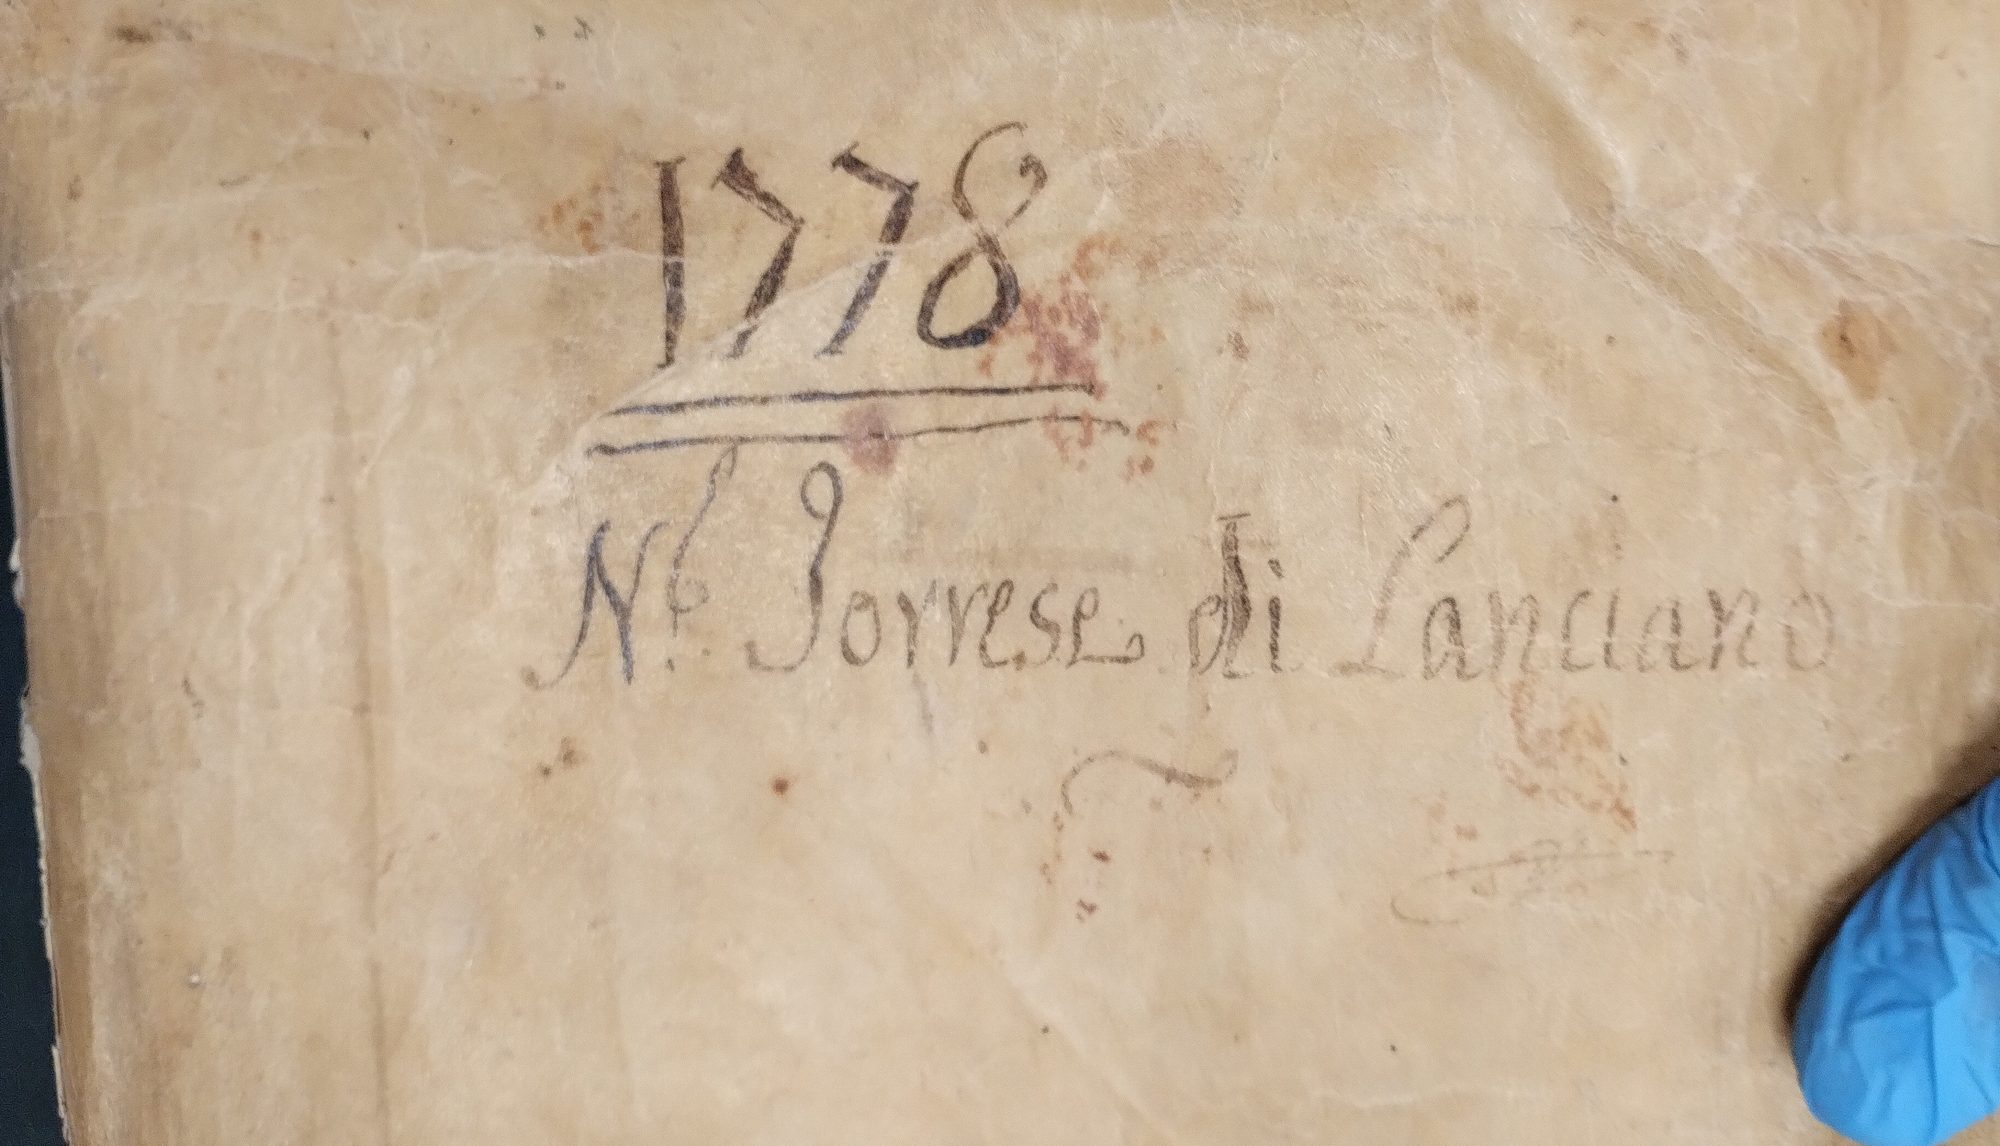 1778
N.r Torrese di Lanciano